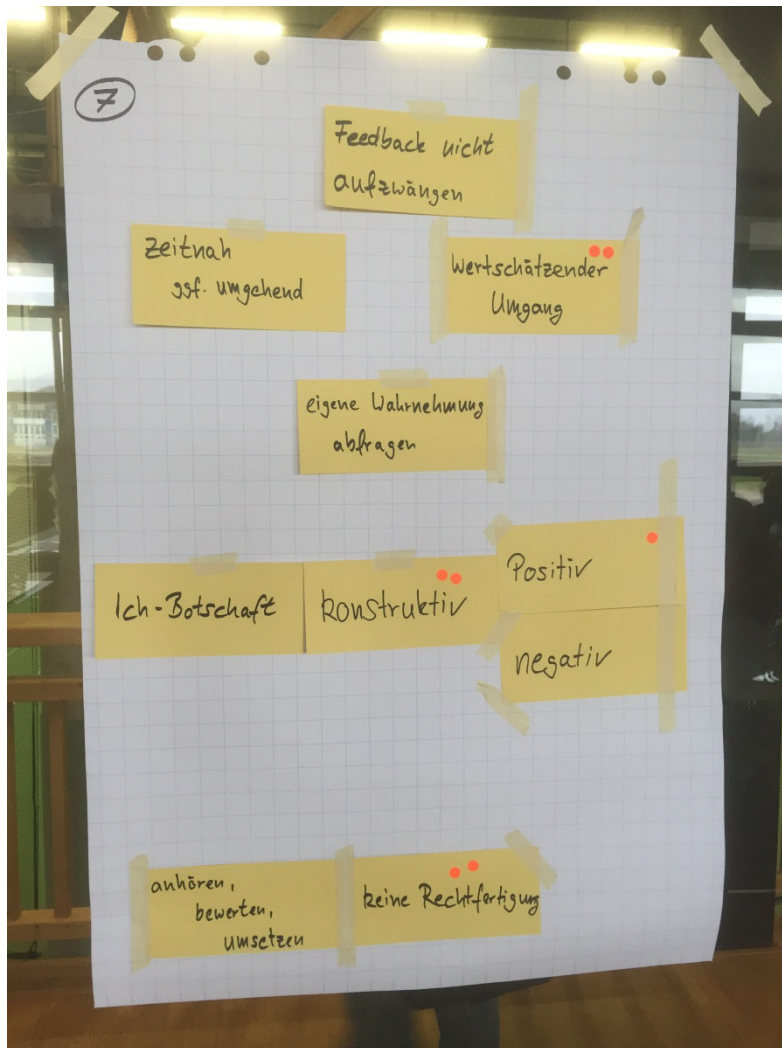 7
Feedback nicht
aufzwängen
Zeitnah
ggf. umgehend
Wertschätzender
Umgang
eigene Wahrnehmung
abfragen
Ich-Botschaft
konstruktiv
Positiv
negativ
anhören,
bewerten,
umsetzen
keine Rechtfertigung